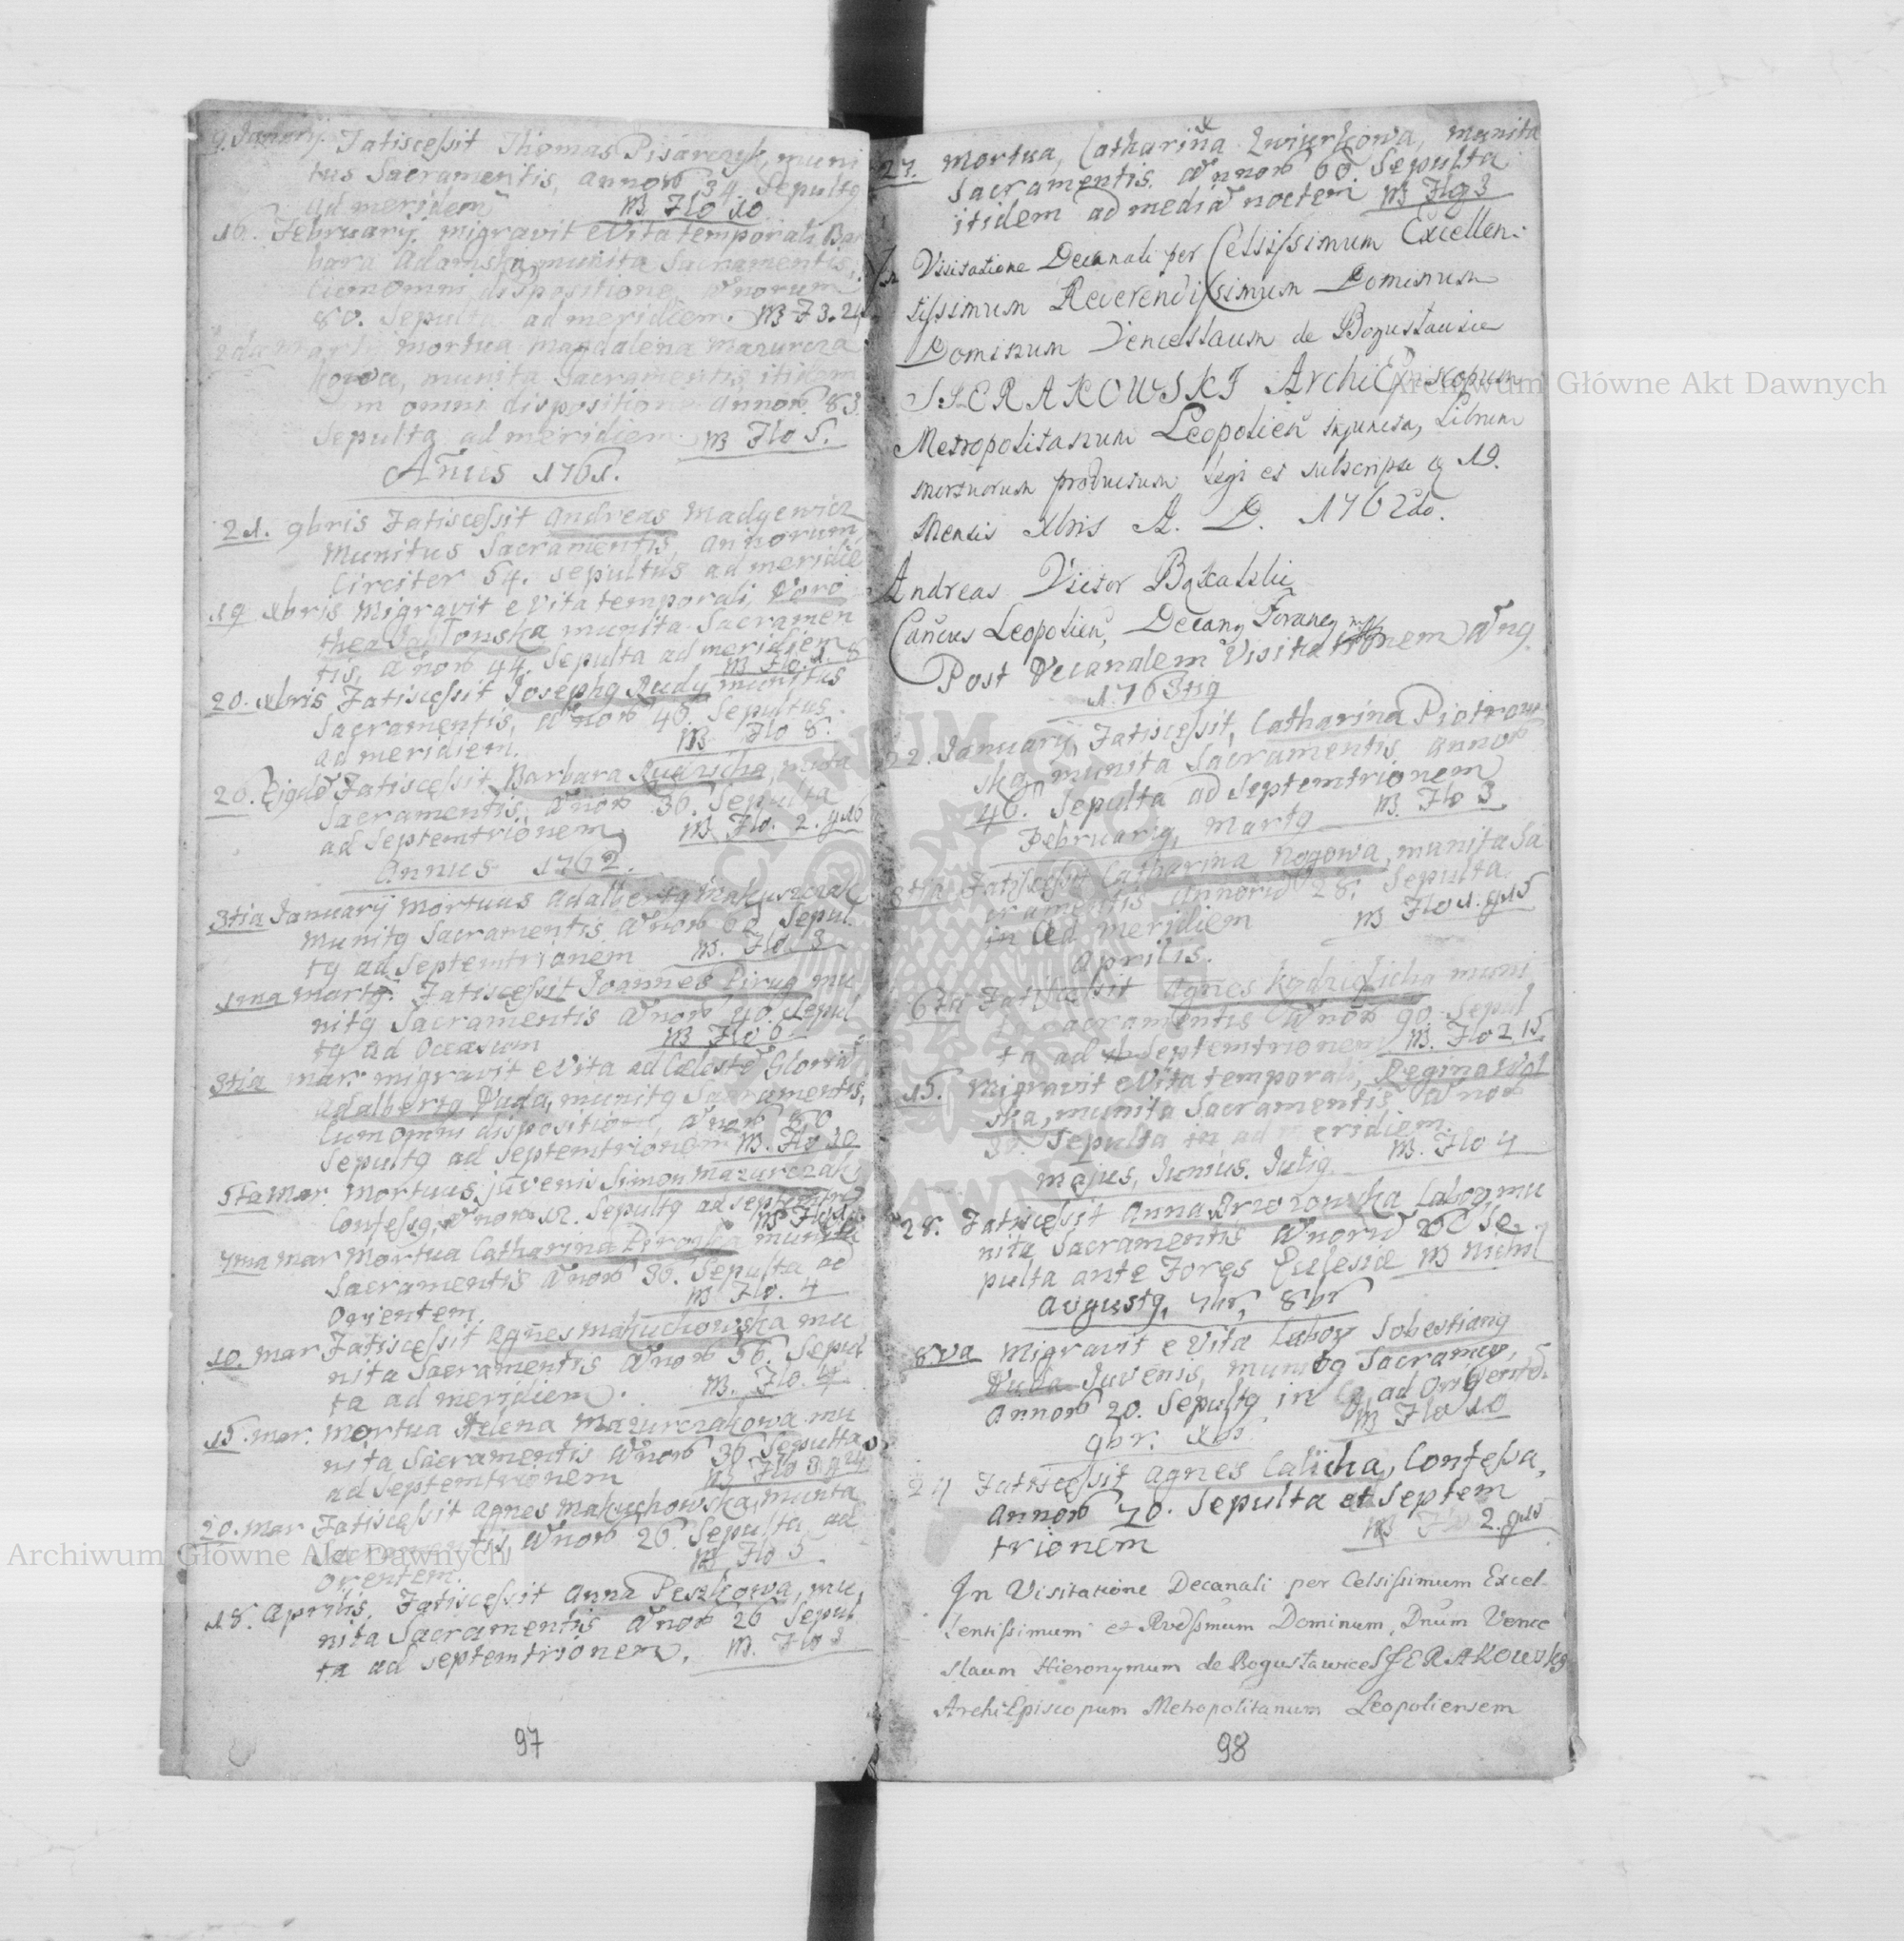 9. January. Fatiscessit Thomas Pisarczyk, muni
tus Sacramentis, annor 34. Sepultq
ad meridem
M Flo 10
16. February. migravit e Vita temporali Bar
bara Adamska, munita Sacramentis,
cum omni dispositione, Annorum
80. Sepulta ad meridiem. M F 3. 24
2da mortua magdalena mazurcza
kowa, munita Sacramentis itidem
omni dispositione annor. 83.
Sepulta ad meridiem M Flo 5.
Anus 1761.
21. 9bris Fatiscessit Andreas Madyewicz
Munitus Sacramentis, annorum
Circiter 54. sepultus ad meridie
19 Xbris Migravit e Vita temporali, Doro
thea munita Sacramen
tis, Annor 44. Sepulta ad meridiem
M Flo. 1. 8
20. Xbris Fatiscessit Josephq Rudy munitus
Sacramentis, Annor 48. Sepultus
ad meridiem.
M Flo 8.
26. Eigdē Fatiscessit Barbara
Sacramentis, Annor 30. Sepulta
ad Septemtrionem,
M Flo. 2. g 16
Annus 1762.
3tia January Mortuus adalbertq Makuszczak
Munitq Sacramentis Annor 60 Sepul
tq ad Septemtrionem
M. Flo 3
1ma martq. Fatiscessit Joannes Pirug mu
nitq Sacramentis Annor 40. Sepul
tq ad Occasum
M Flo 6
3tia mar. migravit e Vita ad Caleste Gloriā
adalbertq Duda, munitq Sacramentis,
Cum omni dispositione, Annor 80
Sepultq ad Septemtrionem M. Flo 20
5ta mar. Mortuus juvenis Simon mazurczak
Confessq, Annor 12. Sepultq ad septemtrio
7ma mar Mortua Catharina munita
Sacramentis Annor 30. Sepulta ad
Orientem.
M Flo. 4
10. mar Fatiscessit Agnes makuchowska mu
nita Sacramentis Annor 56. Sepul
ta ad meridiem.
M. Flo. 4
15. mar. mortua Helena Mazurczakowa mu
nita Sacramentis Annor 36 Sepulta
ad Septemtrionem
M Flo 3
20. mar Fatiscessit agnes makuchowska, munita
Annor 26. Sepulta ad
Orentem.
M Flo 5
18. aprilis, Fatiscessit Anna Peszkowa, mu,
nita Sacramentis Annor 26 Sepul
ta ad septemtrionem, M. Flo 3
97
27. mortua, Catharina Zwiurkowa, munita
Sacramentis. Annor 60. Sepulta
itidem ad mediā noctem M Flg 3
In Visitatione Decanali per Celsissimum Excellen:
tissimum Reverendissimum Dominum
Dominum Venceslaum de Bogusławice
SIERAKOWSKI ArchiEpiscopum
Metropolitanum Leopolien injuncta, Librum
mortuorum productum legi et subscripsi 19.
Mensis Xbris A. D. 1762do.
Andreas Victor Bakalski
Cancus Leopolien, Decang Foraneg mpp
Post Decanalem Visitationem Anq.
1763tiq
22. January, Fatiscessit, Catharina Piotrow
ska munita Sacramentis. annor
46. Sepulta ad Septemtrionem
M Flo 3
Februariq, Martq
3tia Fatiscessit Catharina Nogowa, munita Sa
cramentis Annorū 28. Sepulta
in ad meridiem
M Flo 1. g 15
aprilis.
6ta Fatiscessit agnes Kędziolicha muni
Sacramentis Annor 90 Sepul
ta ad Septemtrionem M. Flo 2. 15
15. Migravit e Vita temporali, Regina
ska, munita Sacramentis Annor
30. Sepulta ad meridiem.
M. Flo 4
majus, Junius. Juliq.
28. Fatiscessit Anna Brzozowska Labog. mu
nita Sacramentis Annorū 26 Se
pulta ante Fores Eclesiæ M Nichil
Avgustq, 7br, 8br
8va Migravit e Vita Labog Sobestianq
Duda Juvenis, munitq Sacramen,
Annor 20. Sepultq in ad Orientē.
M Flo 10
9br. Xbr.
27 Fatiscessit agnes Calicha, Confessa,
Annor 70. Sepulta at Septem
trionem
M Flo 2. g 15
In Visitatione Decanali per Celsissimum Excel
lentissimum et Rvdssmum Dominum, Dnum Vence
slaum Hieronymum de Bogusławice SIERAKOWSKI
ArchiEpiscopum Metropolitanum Leopoliensem
98
Archiwum Główne Akt Dawnych
Archiwum Główne Akt Dawnych